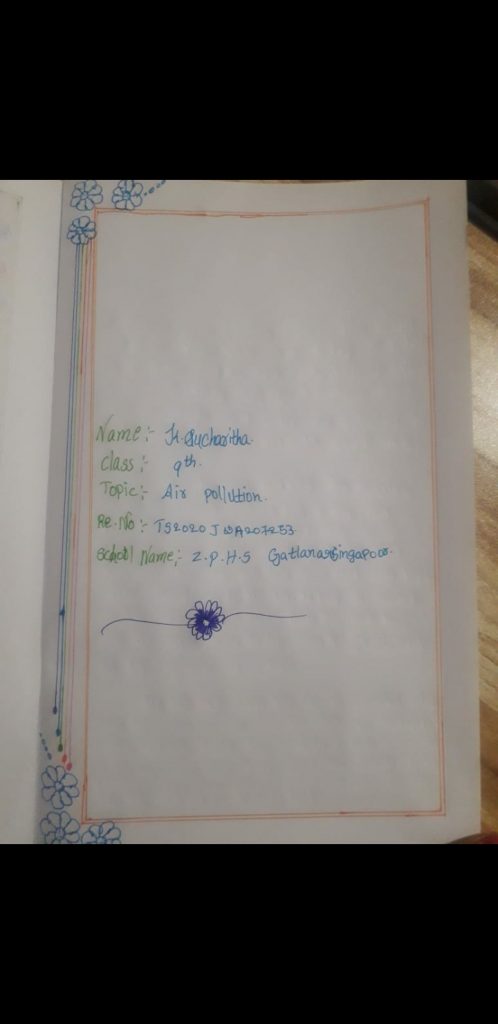 Name:- K. Sucharitha.
Class:- 9th.
Topic:- Air pollution.
Re.No:- TS2020
School Name:- Z.P.H.S Gatlanarsingapoor.